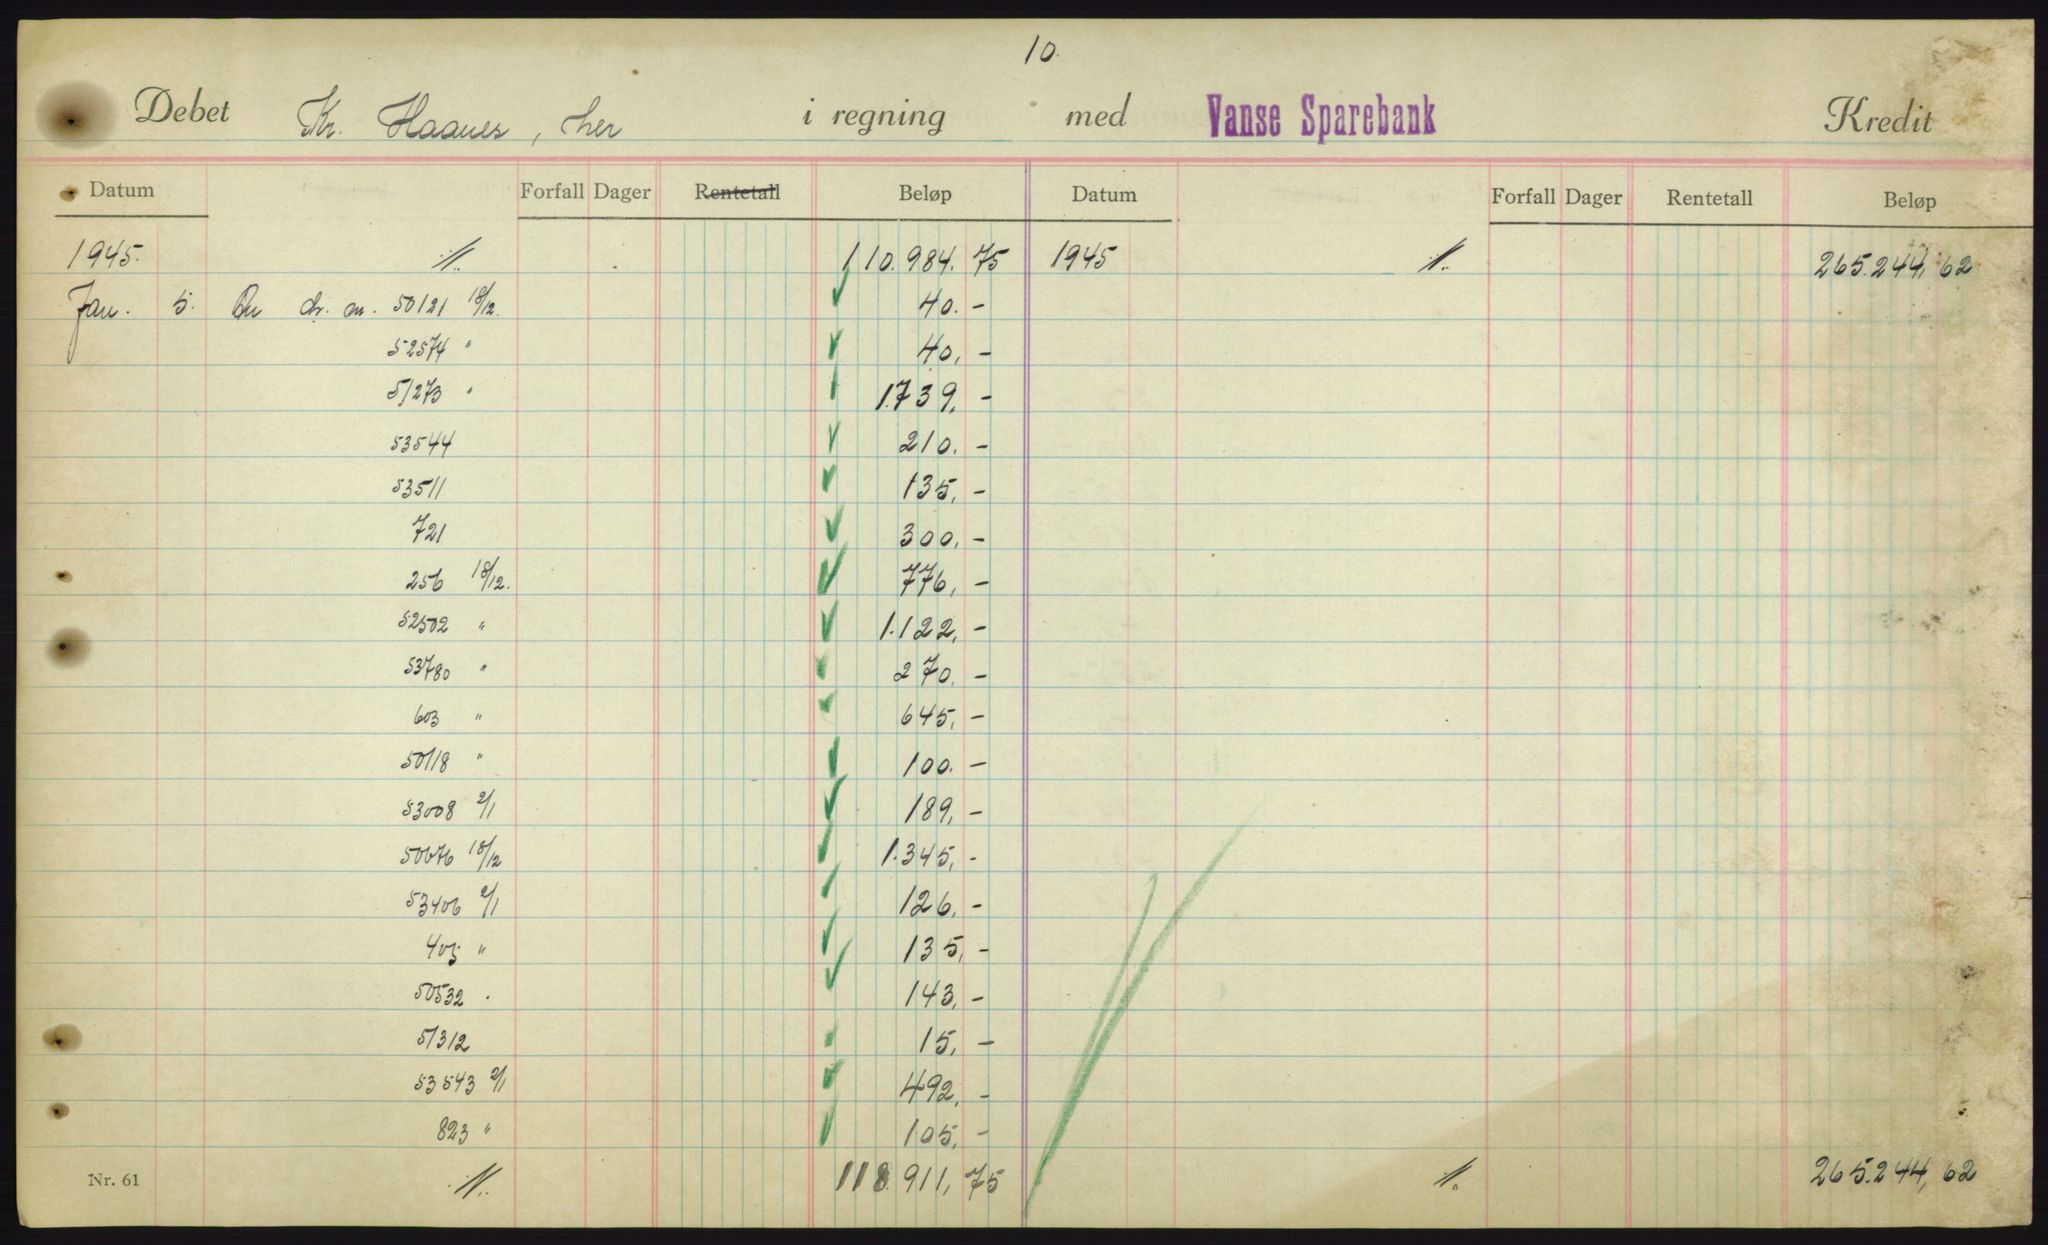 10.
Debet Kr. Haanes, her i regning med Vanse Sparebank Kredit
Datum Forfall Dager Rentetall Beløp Datum Forfall Dager Rentetall Beløp
1945. 110.984.75 1945 265.244,62
Jan. 5. An chr. an. 50121 18/12. 40.-
52574 " 40,-
51273 " 1.739,-
53544 210.-
53511 135,-
721 300,-
256 18/12. 776,-
52502 " 1.122,-
53780 " 270,-
603 " 645,-
50118 " 100.-
53008 2/1 189,-
50676 18/12 1.345,-
53406 2/1 126,-
405 " 135,-
50532 " 143,-
51312 15,-
53543 2/1 492,-
823 " 105,-
Nr. 61 118.911,75 265.244,62